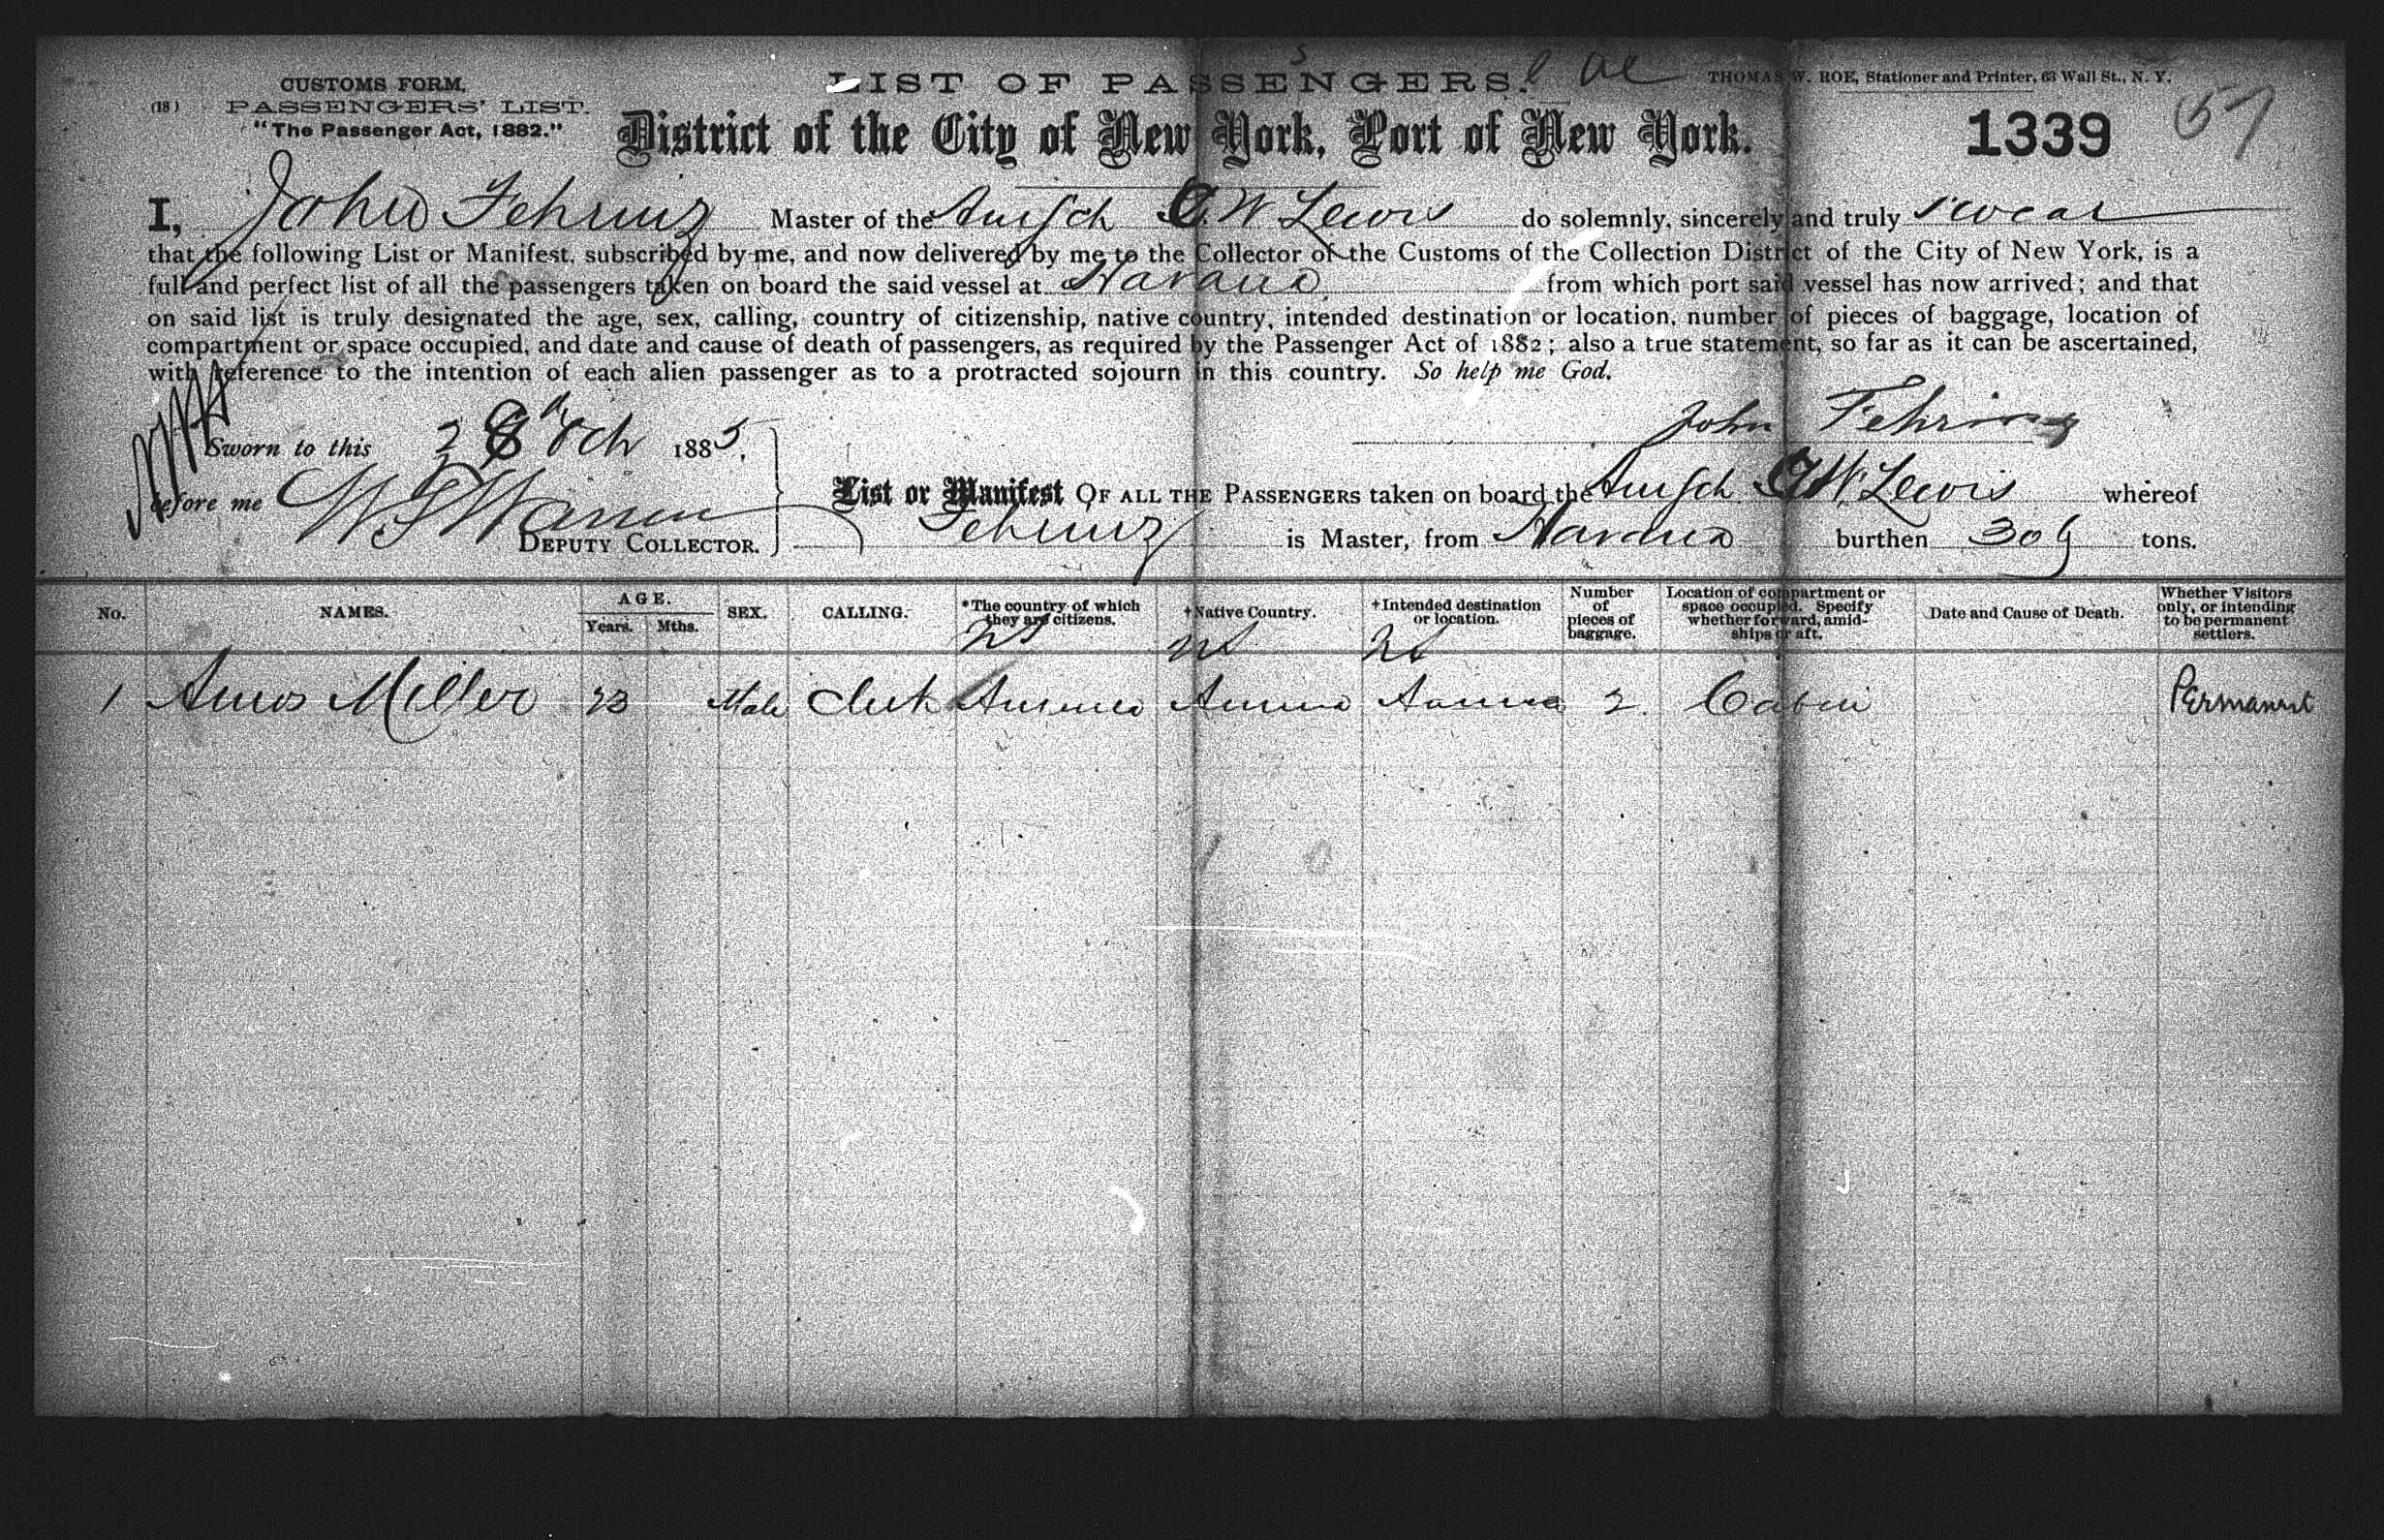 CUSTOMS FORM.
(18) PASSENGERS' LIST.
"The Passenger Act, 1882."
LIST OF PASSENGERS.
THOMAS W. ROE, Stationer and Printer, 63 Wall St., N. Y.
District of the City of New York, Port of New York.
1339
57
I, John Fehring Master of the Am Sch G. W Lewis do solemnly, sincerely and truly swear
that the following List or Manifest, subscribed by me, and now delivered by me to the Collector of the Customs of the Collection District of the City of New York, is a
full and perfect list of all the passengers taken on board the said vessel at Havana from which port said vessel has now arrived; and that
on said list is truly designated the age, sex, calling, country of citizenship, native country, intended destination or location, number of pieces of baggage, location of
compartment or space occupied, and date and cause of death of passengers, as required by the Passenger Act of 1882; also a true statement, so far as it can be ascertained,
with reference to the intention of each alien passenger as to a protracted sojourn in this country. So help me God.
John Fehring
Sworn to this 28 Oct 1885.
before me
DEPUTY COLLECTOR.
List or Manifest OF ALL THE PASSENGERS taken on board the Am Sch G W. Lewis whereof
Fehring is Master, from Havana burthen 309 tons.
No. NAMES. AGE. Years. Mths. SEX. CALLING. *The country of which they are citizens. +Native Country. +Intended destination or location. Number of pieces of baggage. Location of compartment or space occupied. Specify whether forward, amidships or aft. Date and Cause of Death. Whether Visitors only, or intending to be permanent settlers.
1 Amos Miller 23 Male Clerk America America America 2 Cabin Permanent